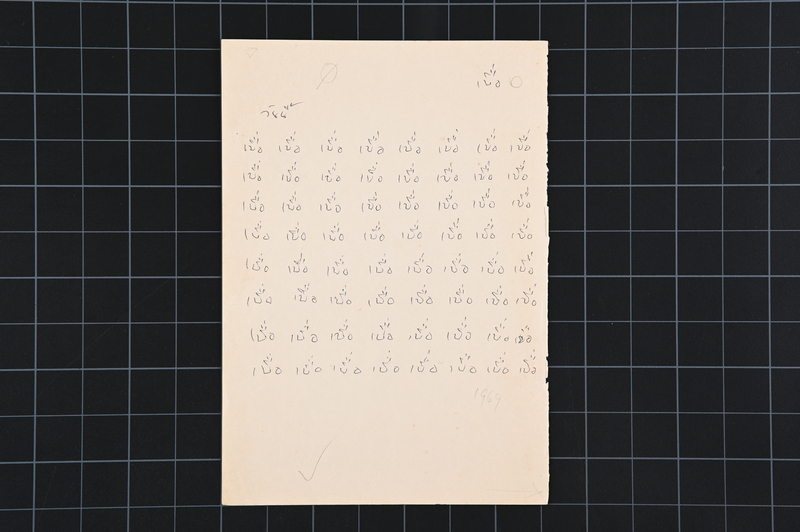 เบื่อ
วันนี้
เบื่อ เบื่อ เบื่อ เบื่อ เบื่อ เบื่อ เบื่อ เบื่อ
เบื่อ เบื่อ เบื่อ เบื่อ เบื่อ เบื่อ เบื่อ เบื่อ
เบื่อ เบื่อ เบื่อ เบื่อ เบื่อ เบื่อ เบื่อ เบื่อ
เบื่อ เบื่อ เบื่อ เบื่อ เบื่อ เบื่อ เบื่อ เบื่อ
เบื่อ เบื่อ เบื่อ เบื่อ เบื่อ เบื่อ เบื่อ เบื่อ
เบื่อ เบื่อ เบื่อ เบื่อ เบื่อ เบื่อ เบื่อ เบื่อ
เบื่อ เบื่อ เบื่อ เบื่อ เบื่อ เบื่อ เบื่อ เบื่อ
เบื่อ เบื่อ เบื่อ เบื่อ เบื่อ เบื่อ เบื่อ เบื่อ
1969